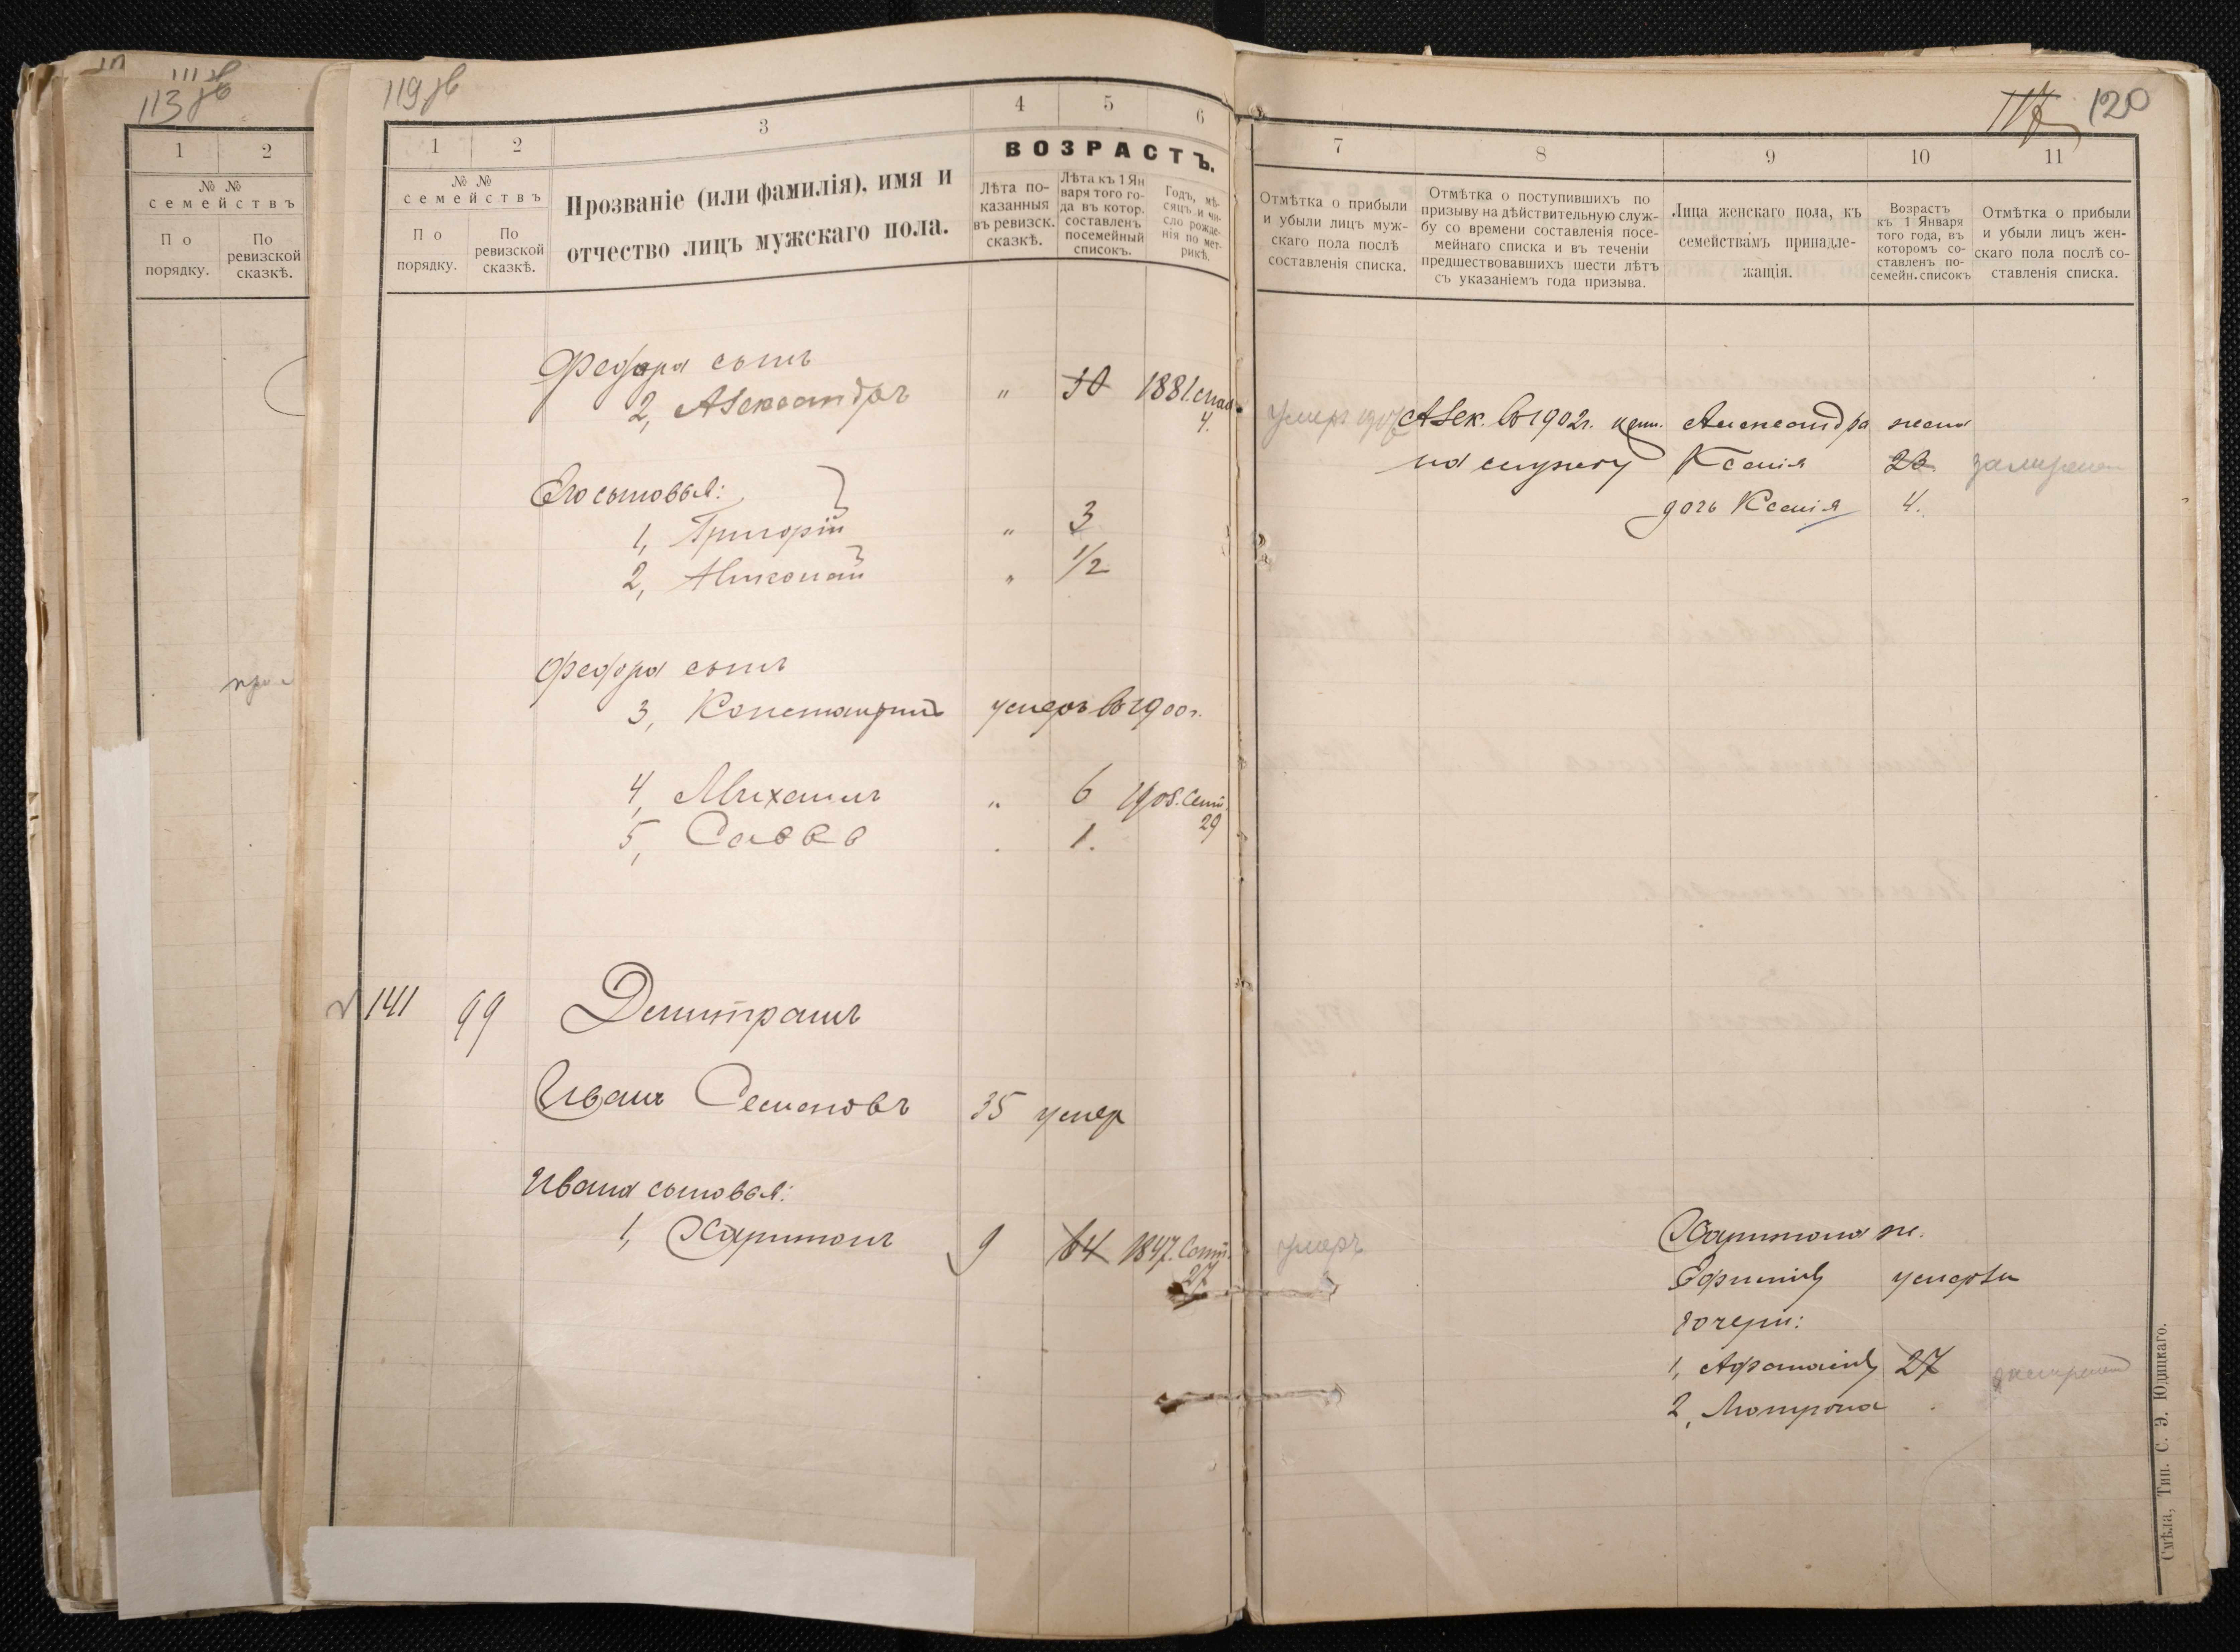 113 зв
1 2
№ №
семействъ
По порядку.
По ревизской сказкѣ.
119 зв
1 2 3 4 5 6
№ №
семействъ
По порядку.
По ревизской сказкѣ.
Прозваніе (или фамилія), имя и
отчество лицъ мужскаго пола.
ВОЗРАСТЪ.
Лѣта по-
казанныя
въ ревизск.
сказкѣ.
Лѣта къ 1 Ян
варя того го-
да въ котор.
составленъ
посемейный
списокъ.
Годъ, мѣ-
сяцъ и чи-
сло рожде-
нія по мет-
рикѣ.
Федора сынъ
2, Александръ " 30 1881.
4.
Его сыновья:
1, Григорій " 3
2, Николай " 1/2
Федора сынъ
3, Константинъ умеръ въ 1900г.
4, Михаилъ " 6 1905. Сент.
29
5, Савва . 1.
141 99 Демитрашъ
Иванъ Семеновъ 35 умер
Ивана сыновья:
1, Харитонъ 9 64 1847. Сент.
27
120
7 8 9 10 11
Отмѣтка о прибыли
и убыли лицъ муж-
скаго пола послѣ
составленія списка.
Отмѣтка о поступившихъ по
призыву на дѣйствительную служ-
бу со времени составленія посе-
мейнаго списка и въ теченіи
предшествовавшихъ шести лѣтъ
съ указаніемъ года призыва.
Лица женскаго пола, къ
семействамъ принадле-
жащія.
Возрастъ
къ 1 Января
того года, въ
которомъ со-
ставленъ по-
семейн. списокъ
Отмѣтка о прибыли
и убыли лицъ жен-
скаго пола послѣ со-
ставленія списка.
умеръ Алек. въ 1902г. Александра жена
на службу Ксенія 23. замужем
дочь Ксенія 4.
умеръ Харитона ж.
Ефимія умерла
дочери:
1, Афанасія 27 замужем
2, Мотрона .
Смѣла, Тип. С. Э. Юдицкаго.